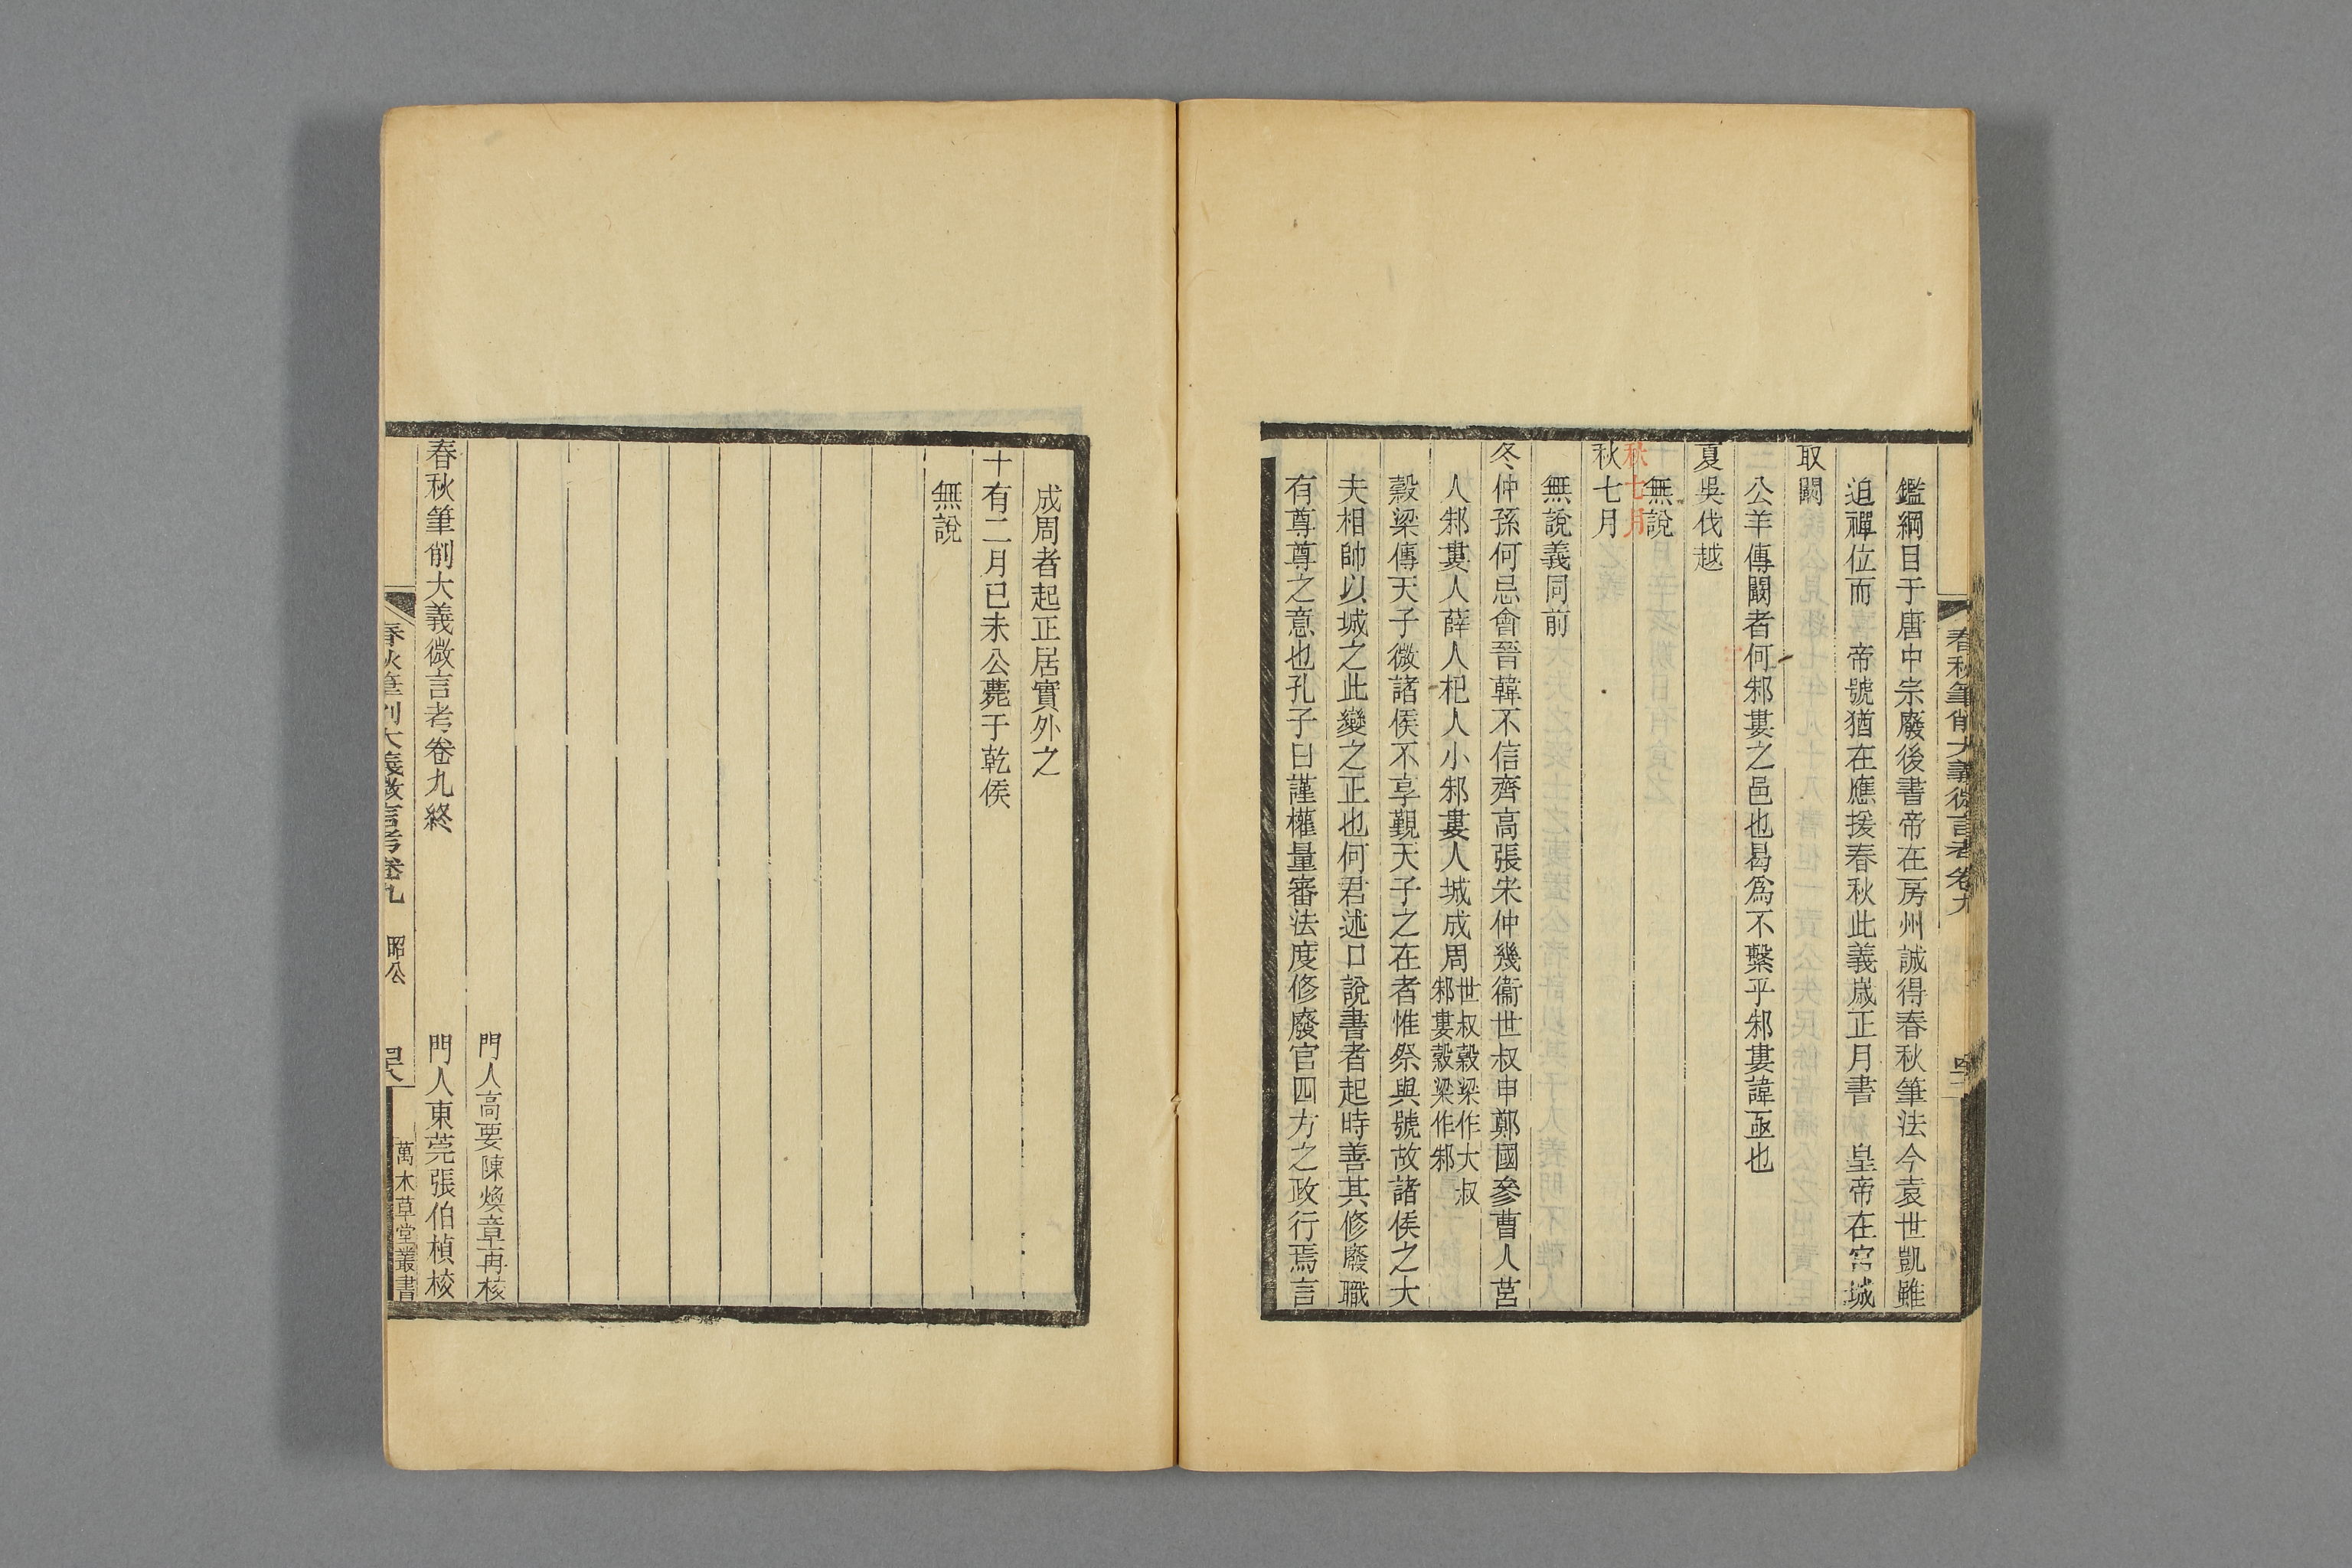 春秋筆削大義微言考卷九
鑑綱目于唐中宗廢後書帝在房州誠得春秋筆法今袁世凱雖
迫禪位而　帝號猶在應援春秋此義歲正月書　皇帝在宮城
取闞
公羊傳闞者何邾婁之邑也曷爲不繫乎邾婁諱亟也
夏吳伐越
無說
秋七月
秋七月
無說義同前
冬仲孫何忌會晉韓不信齊高張宋仲幾衞世叔申鄭國參曹人莒
人邾婁人薛人杞人小邾婁人城成周世叔穀梁作大叔邾婁穀梁作邾
穀梁傳天子微諸侯不享覲天子之在者惟祭與號故諸侯之大
夫相帥以城之此變之正也何君述口說書者起時善其修廢職
有尊尊之意也孔子曰謹權量審法度修廢官四方之政行焉言
成周者起正居實外之
十有二月已未公薨于乾侯
無說
門人高要陳煥章再校
春秋筆削大義微言考卷九終　門人東莞張伯楨校
春秋筆削大義微言考卷九　昭公　萬木草堂叢書